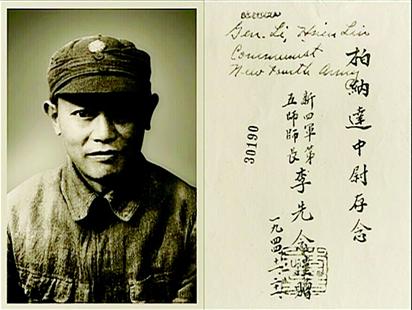 Gen. Li, Hsien Lin
Communist
New Fourth Army
柏納達中尉存念
新四軍第
五師師長
李先念
30190